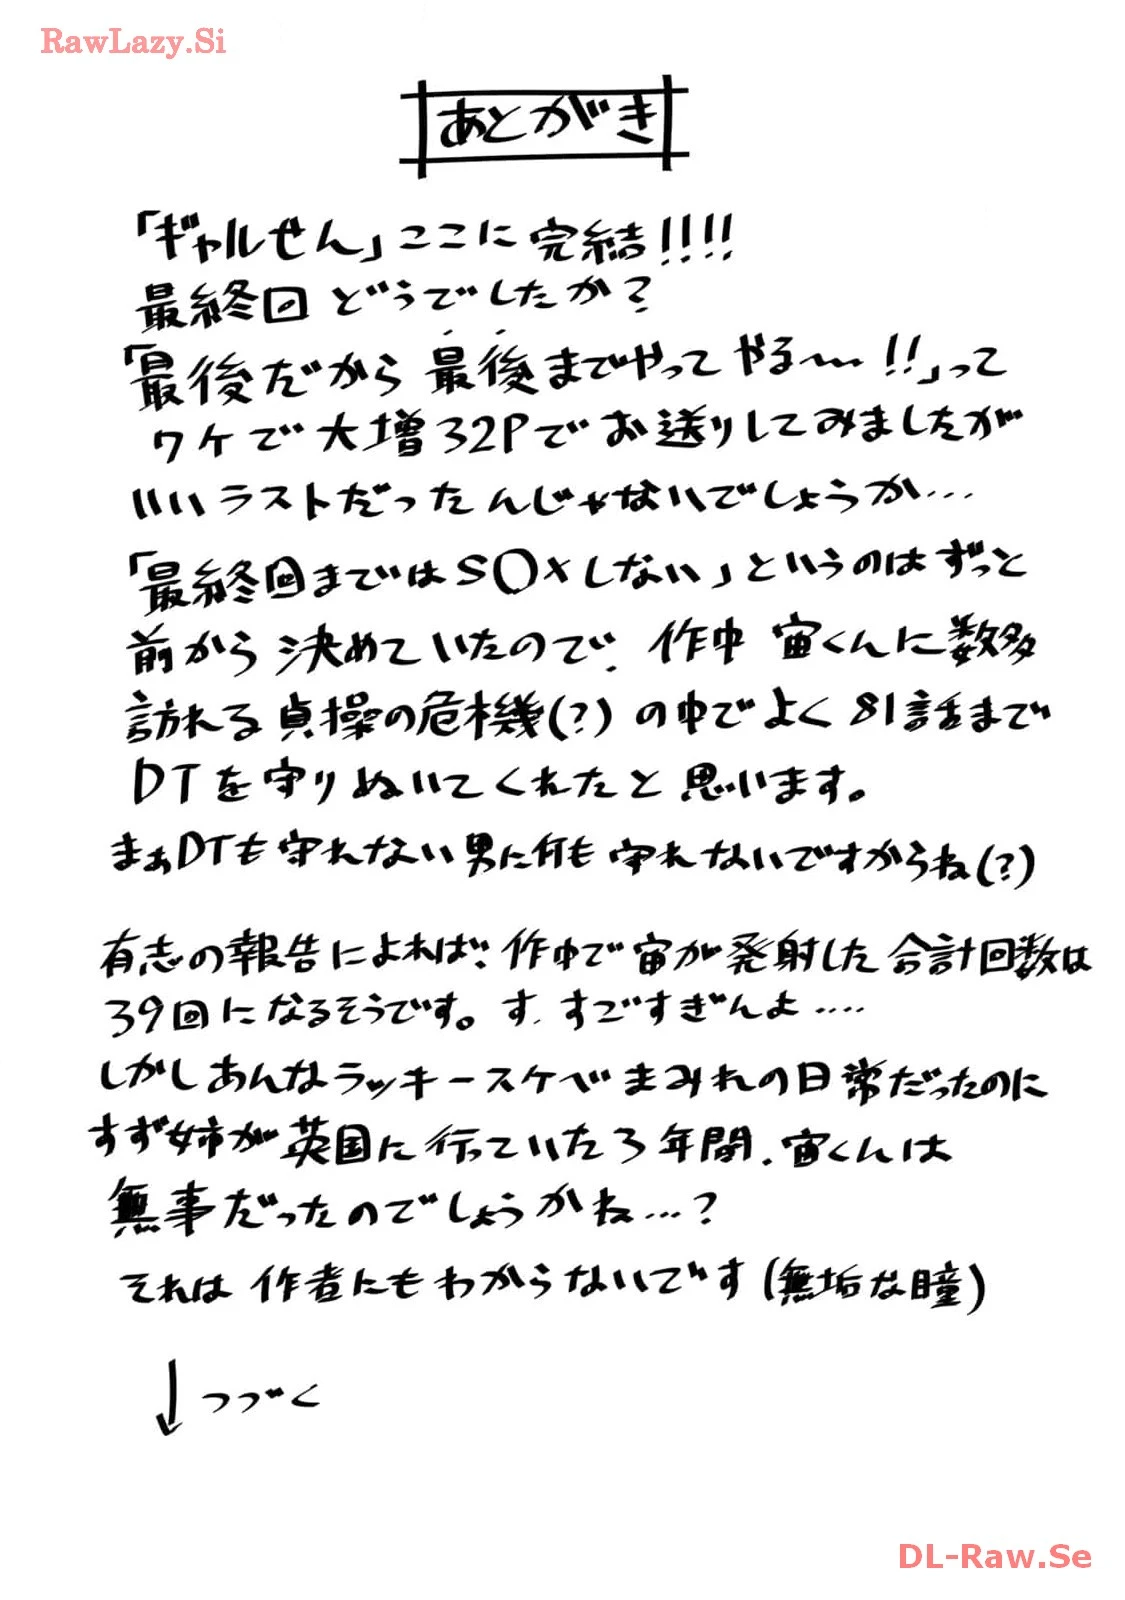 RawLazy.Si
あとがき
「ギャルせん」ここに完結!!!!
最終回どうでしたか?
「最後だから最後までやってやる〜!!」って
ワケで大増32Pでお送りしてみましたが
いいラストだったんじゃないでしょうか…
「最終回まではSOXしない」というのはずっと
前から決めていたので、作中宙くんに数多
訪れる貞操の危機(?)の中でよく81話まで
DTを守りぬいてくれたと思います。
まぁDTも守れない男に何も守れないですからね(?)
有志の報告によれば、作中で宙が発射した合計回数は
39回になるそうです。す、すごすぎんよ….
しかしあんなラッキースケベまみれの日常だったのに
すず姉が英国に行っていた3年間、宙くんは
無事だったのでしょうかね…?
それは作者にもわからないです(無垢な瞳)
↓つづく
DL-Raw.Se